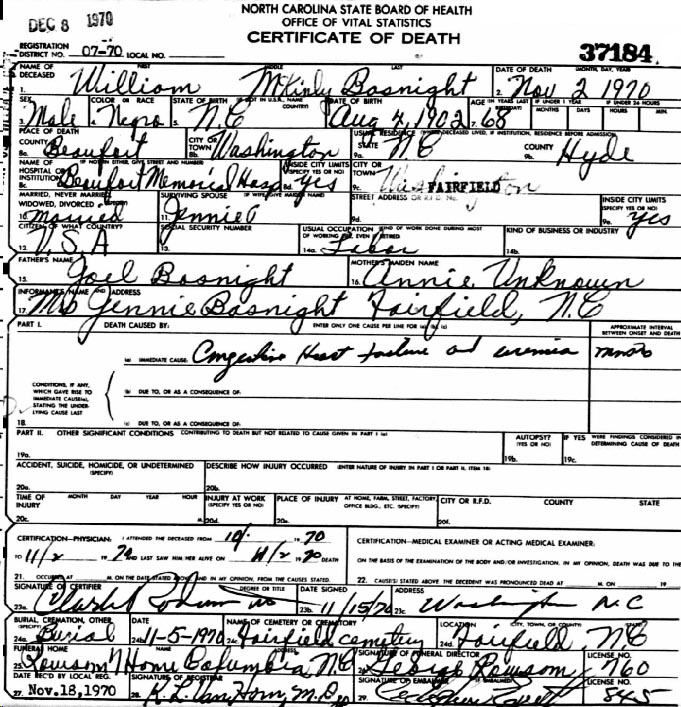 DEC 8 1970
NORTH CAROLINA STATE BOARD OF HEALTH
OFFICE OF VITAL STATISTICS
CERTIFICATE OF DEATH
REGISTRATION DISTRICT NO. 07-70 LOCAL NO.
37184
1. NAME OF DECEASED FIRST William MIDDLE McKinly LAST Basnight
2. DATE OF DEATH (MONTH, DAY, YEAR) Nov 2 1970
3. SEX Male 4. COLOR OR RACE Negro 5. STATE OF BIRTH (IF NOT IN U.S.A., NAME COUNTRY) N C DATE OF BIRTH Aug 4, 1902 7. AGE (IN YEARS LAST BIRTHDAY) 68 IF UNDER 1 YEAR MONTHS DAYS IF UNDER 24 HOURS HOURS MIN.
PLACE OF DEATH USUAL RESIDENCE (WHERE DECEASED LIVED, IF INSTITUTION, RESIDENCE BEFORE ADMISSION)
8a. COUNTY Beaufort 8b. CITY OR TOWN Washington 9a. STATE NC 9b. COUNTY Hyde
8c. NAME OF HOSPITAL OR INSTITUTION (IF NOT IN EITHER, GIVE STREET AND NUMBER) Beaufort Memorial Hosp 8d. INSIDE CITY LIMITS (SPECIFY YES OR NO) yes 9c. CITY OR TOWN Washington FAIRFIELD
10. MARRIED, NEVER MARRIED, WIDOWED, DIVORCED married 11. SURVIVING SPOUSE (IF WIFE, GIVE MAIDEN NAME) Jennie 9d. STREET ADDRESS OR R.F.D. NO. 9e. INSIDE CITY LIMITS (SPECIFY YES OR NO) yes
12. CITIZEN OF WHAT COUNTRY? U.S.A 13. SOCIAL SECURITY NUMBER 14a. USUAL OCCUPATION (KIND OF WORK DONE DURING MOST OF WORKING LIFE, EVEN IF RETIRED) Labor 14b. KIND OF BUSINESS OR INDUSTRY
15. FATHER'S NAME Joel Basnight 16. MOTHER'S MAIDEN NAME Annie Unknown
17. INFORMANT'S NAME AND ADDRESS Mrs Jennie Basnight Fairfield, N.C
PART I. DEATH CAUSED BY: ENTER ONLY ONE CAUSE PER LINE FOR (a) (b) (c) APPROXIMATE INTERVAL BETWEEN ONSET AND DEATH
(a) IMMEDIATE CAUSE Congestive Heart Failure and uremia
CONDITIONS, IF ANY, WHICH GAVE RISE TO IMMEDIATE CAUSE(a), STATING THE UNDERLYING CAUSE LAST
(b) DUE TO, OR AS A CONSEQUENCE OF:
18. (c) DUE TO, OR AS A CONSEQUENCE OF:
PART II. OTHER SIGNIFICANT CONDITIONS CONTRIBUTING TO DEATH BUT NOT RELATED TO CAUSE GIVEN IN PART I (a)
19a. 19b. AUTOPSY? (YES OR NO) 19c. IF YES WERE FINDINGS CONSIDERED IN DETERMINING CAUSE OF DEATH
20a. ACCIDENT, SUICIDE, HOMICIDE, OR UNDETERMINED (SPECIFY) 20b. DESCRIBE HOW INJURY OCCURRED (ENTER NATURE OF INJURY IN PART I OR PART II, ITEM 18)
20c. TIME OF INJURY MONTH DAY YEAR HOUR M. 20d. INJURY AT WORK (SPECIFY YES OR NO) PLACE OF INJURY AT HOME, FARM, STREET, FACTORY, OFFICE BLDG., ETC. (SPECIFY) 20f. CITY OR R.F.D. COUNTY STATE
CERTIFICATION—PHYSICIAN: I ATTENDED THE DECEASED FROM 10/ 1970
TO 11/2 1970 AND LAST SAW HIM HER ALIVE ON 11/2 1970 DEATH
21. OCCURRED AT M. ON THE DATE STATED ABOVE, AND IN MY OPINION, FROM THE CAUSES STATED.
CERTIFICATION—MEDICAL EXAMINER OR ACTING MEDICAL EXAMINER:
ON THE BASIS OF THE EXAMINATION OF THE BODY AND/OR INVESTIGATION, IN MY OPINION, DEATH WAS DUE TO THE
22. CAUSE(S) STATED ABOVE. THE DECEDENT WAS PRONOUNCED DEAD AT M. ON 19
SIGNATURE OF CERTIFIER DEGREE OR TITLE 23b. DATE SIGNED 11/15/70 23c. ADDRESS Washington N.C
24a. BURIAL, CREMATION, OTHER (SPECIFY) Burial 24b. DATE 11-5-1970 24c. NAME OF CEMETERY OR CREMATORY Fairfield cemetery 24d. LOCATION (CITY, TOWN, OR COUNTY) (STATE) Fairfield, NC
25. FUNERAL HOME NAME ADDRESS Rowsom F Home Columbia N.C 26. SIGNATURE OF FUNERAL DIRECTOR Rowsom LICENSE NO. 760
27. DATE REC'D BY LOCAL REG. Nov. 18, 1970 28. SIGNATURE OF REGISTRAR K. L. Van Horn, M.D. 29. SIGNATURE OF EMBALMER IF EMBALMED LICENSE NO. 845